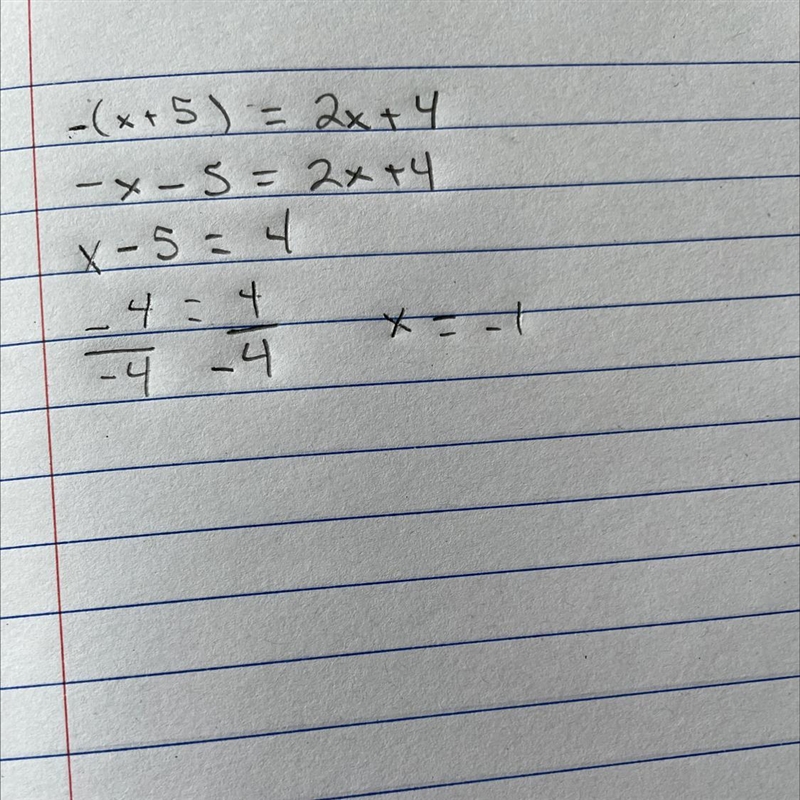 -(x+5) = 2x+4
-x-5 = 2x+4
x-5 = 4
-4/-4 = 4/-4 x = -1